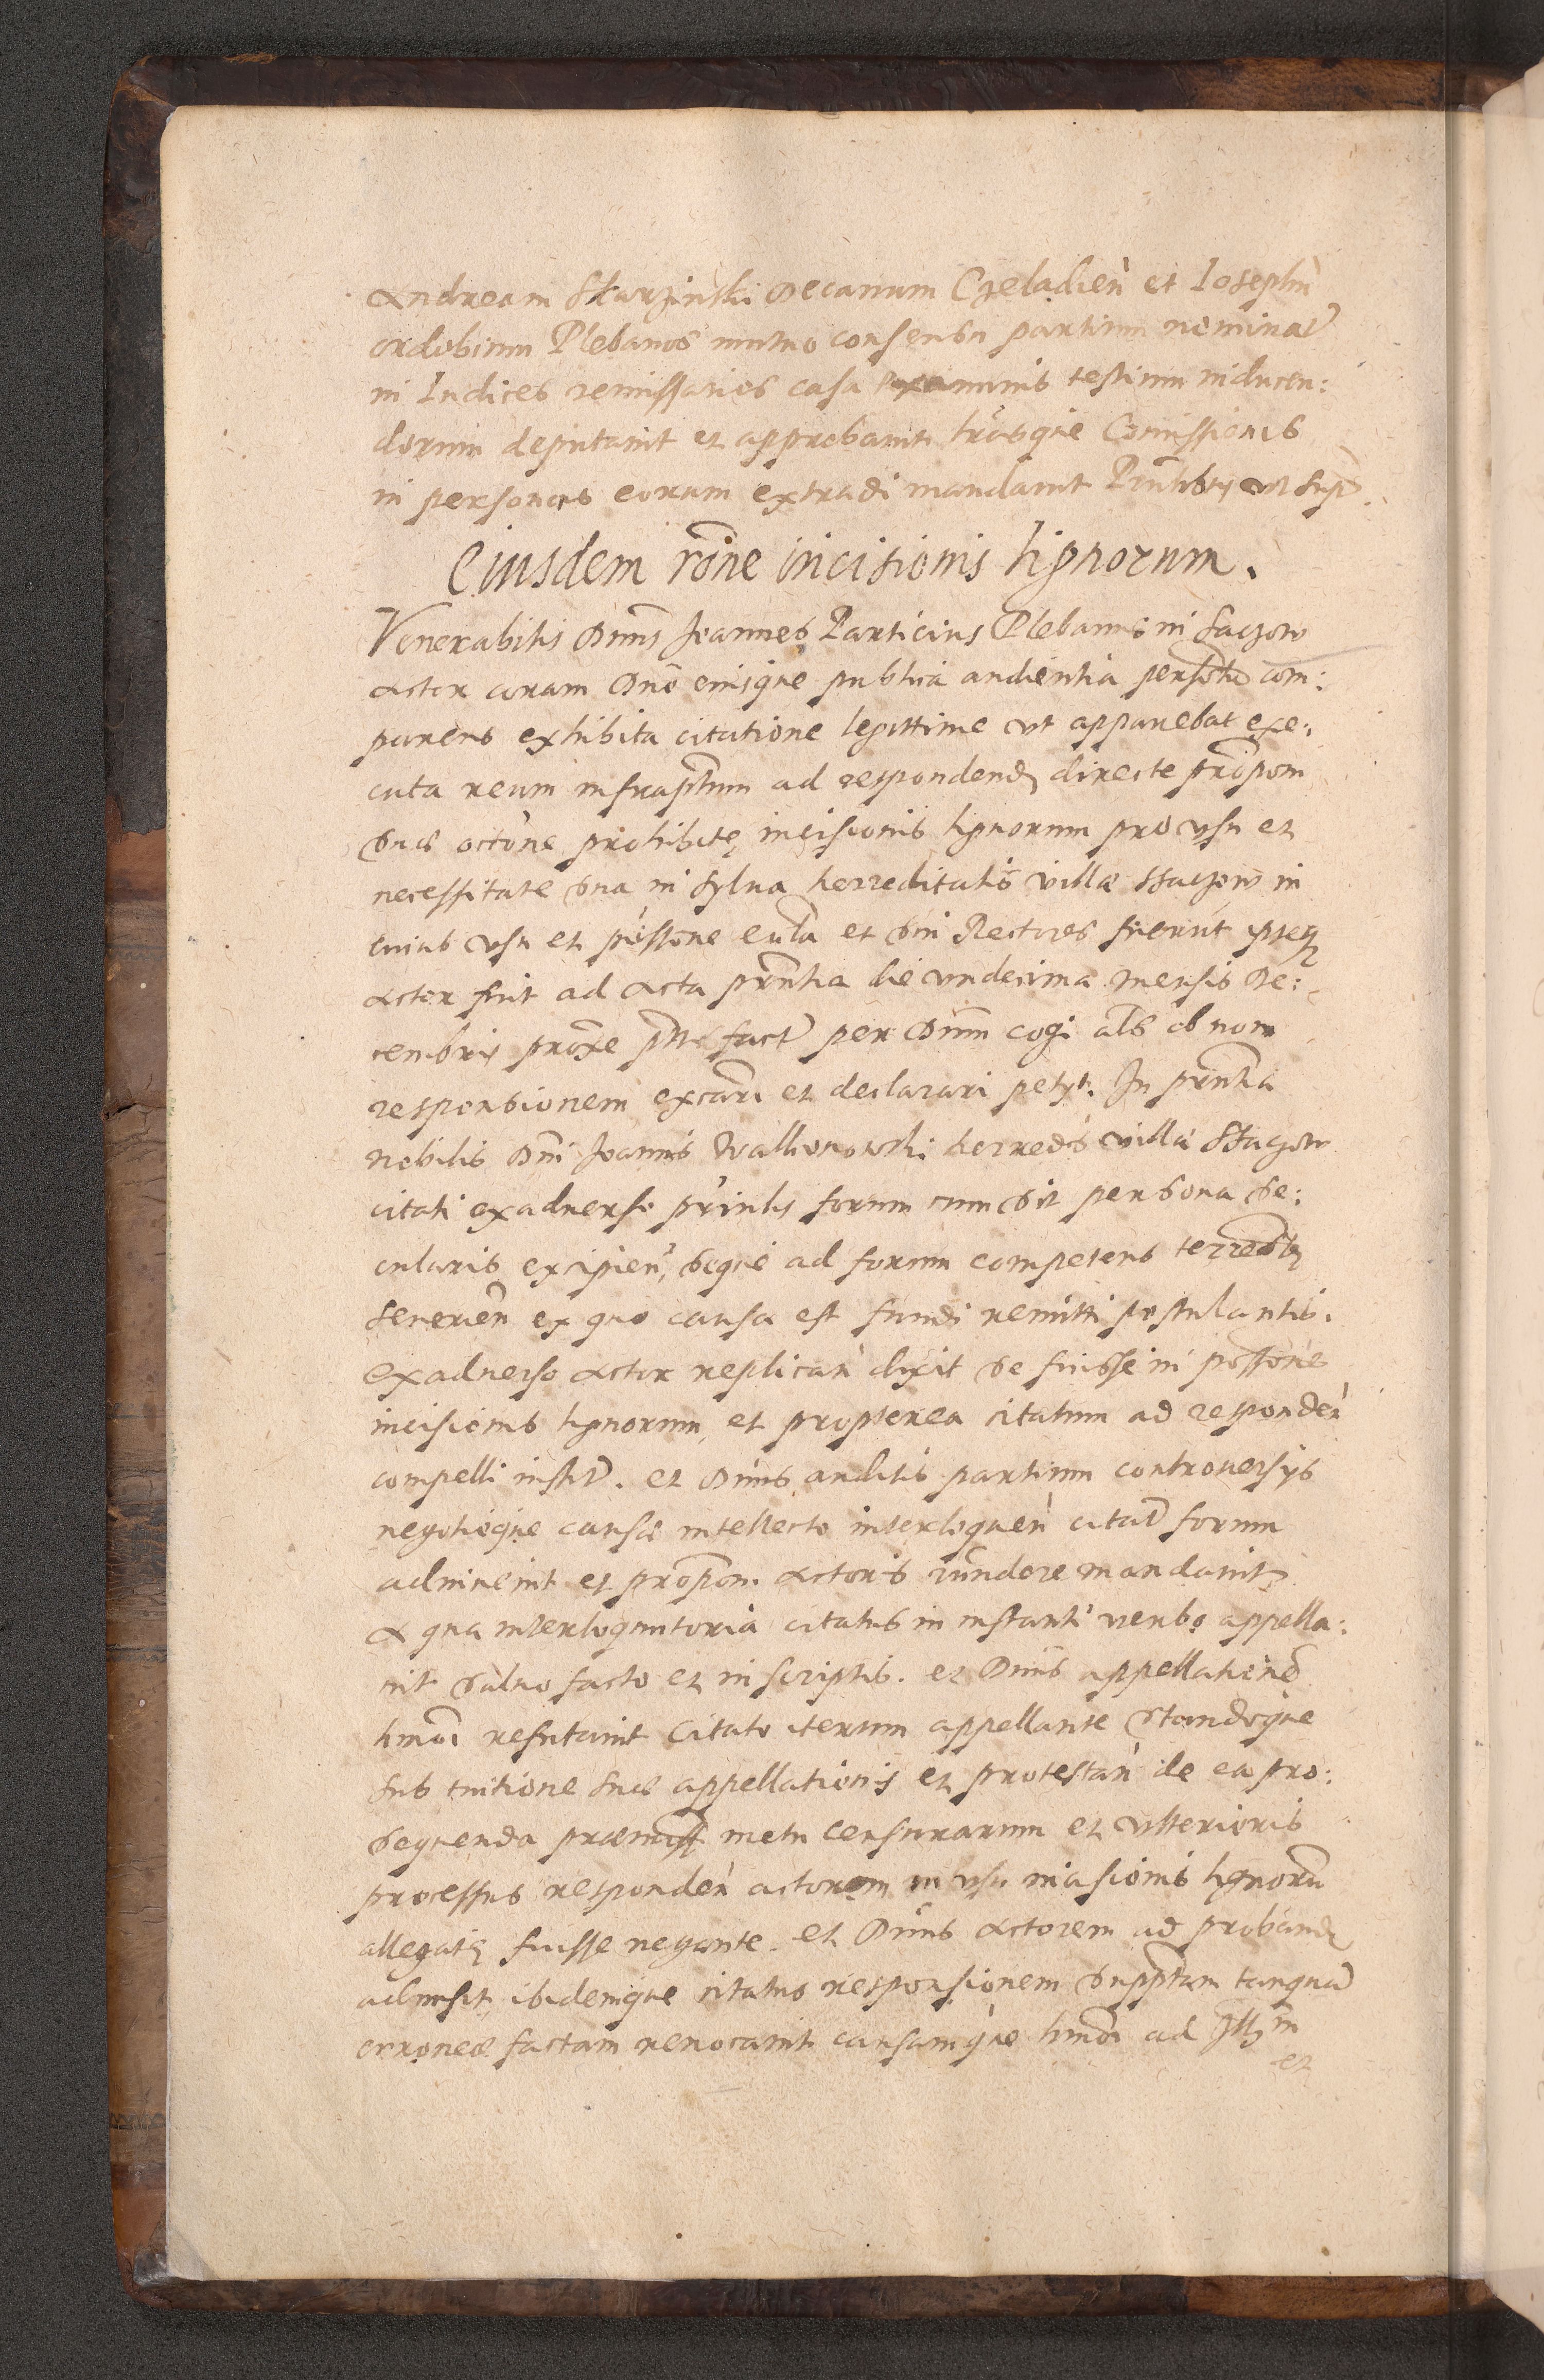 Andream Skarzinski Decanum Czeladien̄ et Iosephū
ordobinum Plebanos mutuo consensu partium nominat̄
in Iudices remissarios casu examinis testium inducen:
dorum deputavit et approbavit lr̄asque Comissionis
in personas eorum extradi mandavit Pn̄tibus vt sup̄
Eiusdem rōne incisionis lignorum.
Venerabilis Dn̄us Joannes Particius Plebanus in Saczow
Actor coram Dn̄o eiusque publica audientia persōlr com:
parens exhibita citatione legittime vt apparebat exe:
cuta reum infrasp̄tum ad respondend directe prōpom
suæ actōne prohibitę incisionis lignorum pro vsu et
necessitate sua in sylva herreditatis villæ Ssaczow in
cuius vsu et possōne ecclā et sui Rectores fuerūt ipseq
Actor fuit ad Acta prn̄tia die vndecima mensis De:
cembris proxe prt̄ fact̄ per Dn̄um cogi als̄ ob non
responsionem excōri et declarari petyt. In prn̄tia
nobilis Dn̄i Joannis herredis villæ Ssaczow
citati exadverso forum cum sit persona se:
cularis excipien̄, seque ad forum competens terrestre
Severien̄ ex quo causa est fundi remitti postulantis.
Exadverso Actor replican̄ dixit se fuisse in possōne
incisionis lignorum et propterea citatum ad responden̄
compelli instit̄. et Dn̄us auditis partium controversijs
negotioque causæ intellecto interloquen̄ citat̄ forum
adiuvenit et propōm. Actoris rn̄dere mandavit
A qua interloquutoria citatus in instanti verbo appella:
vit salvo facto et in scriptis. et Dn̄us appellationē
hmōi refutavit Citato iterum appellante standoque
sub tuitione suæ appellationis et protestan̄ de ea pro:
sequenda præmiss metu censurarum et vlterioris
processus responden̄ actorem in vsu incisionis lignorū
allegatę fuisse negante. et Dn̄us Actorem ad proband
admisit ibidemque citatus responsionem supp̄tam tanquā
erroneæ factam revocavit causamque hmōi ad
et